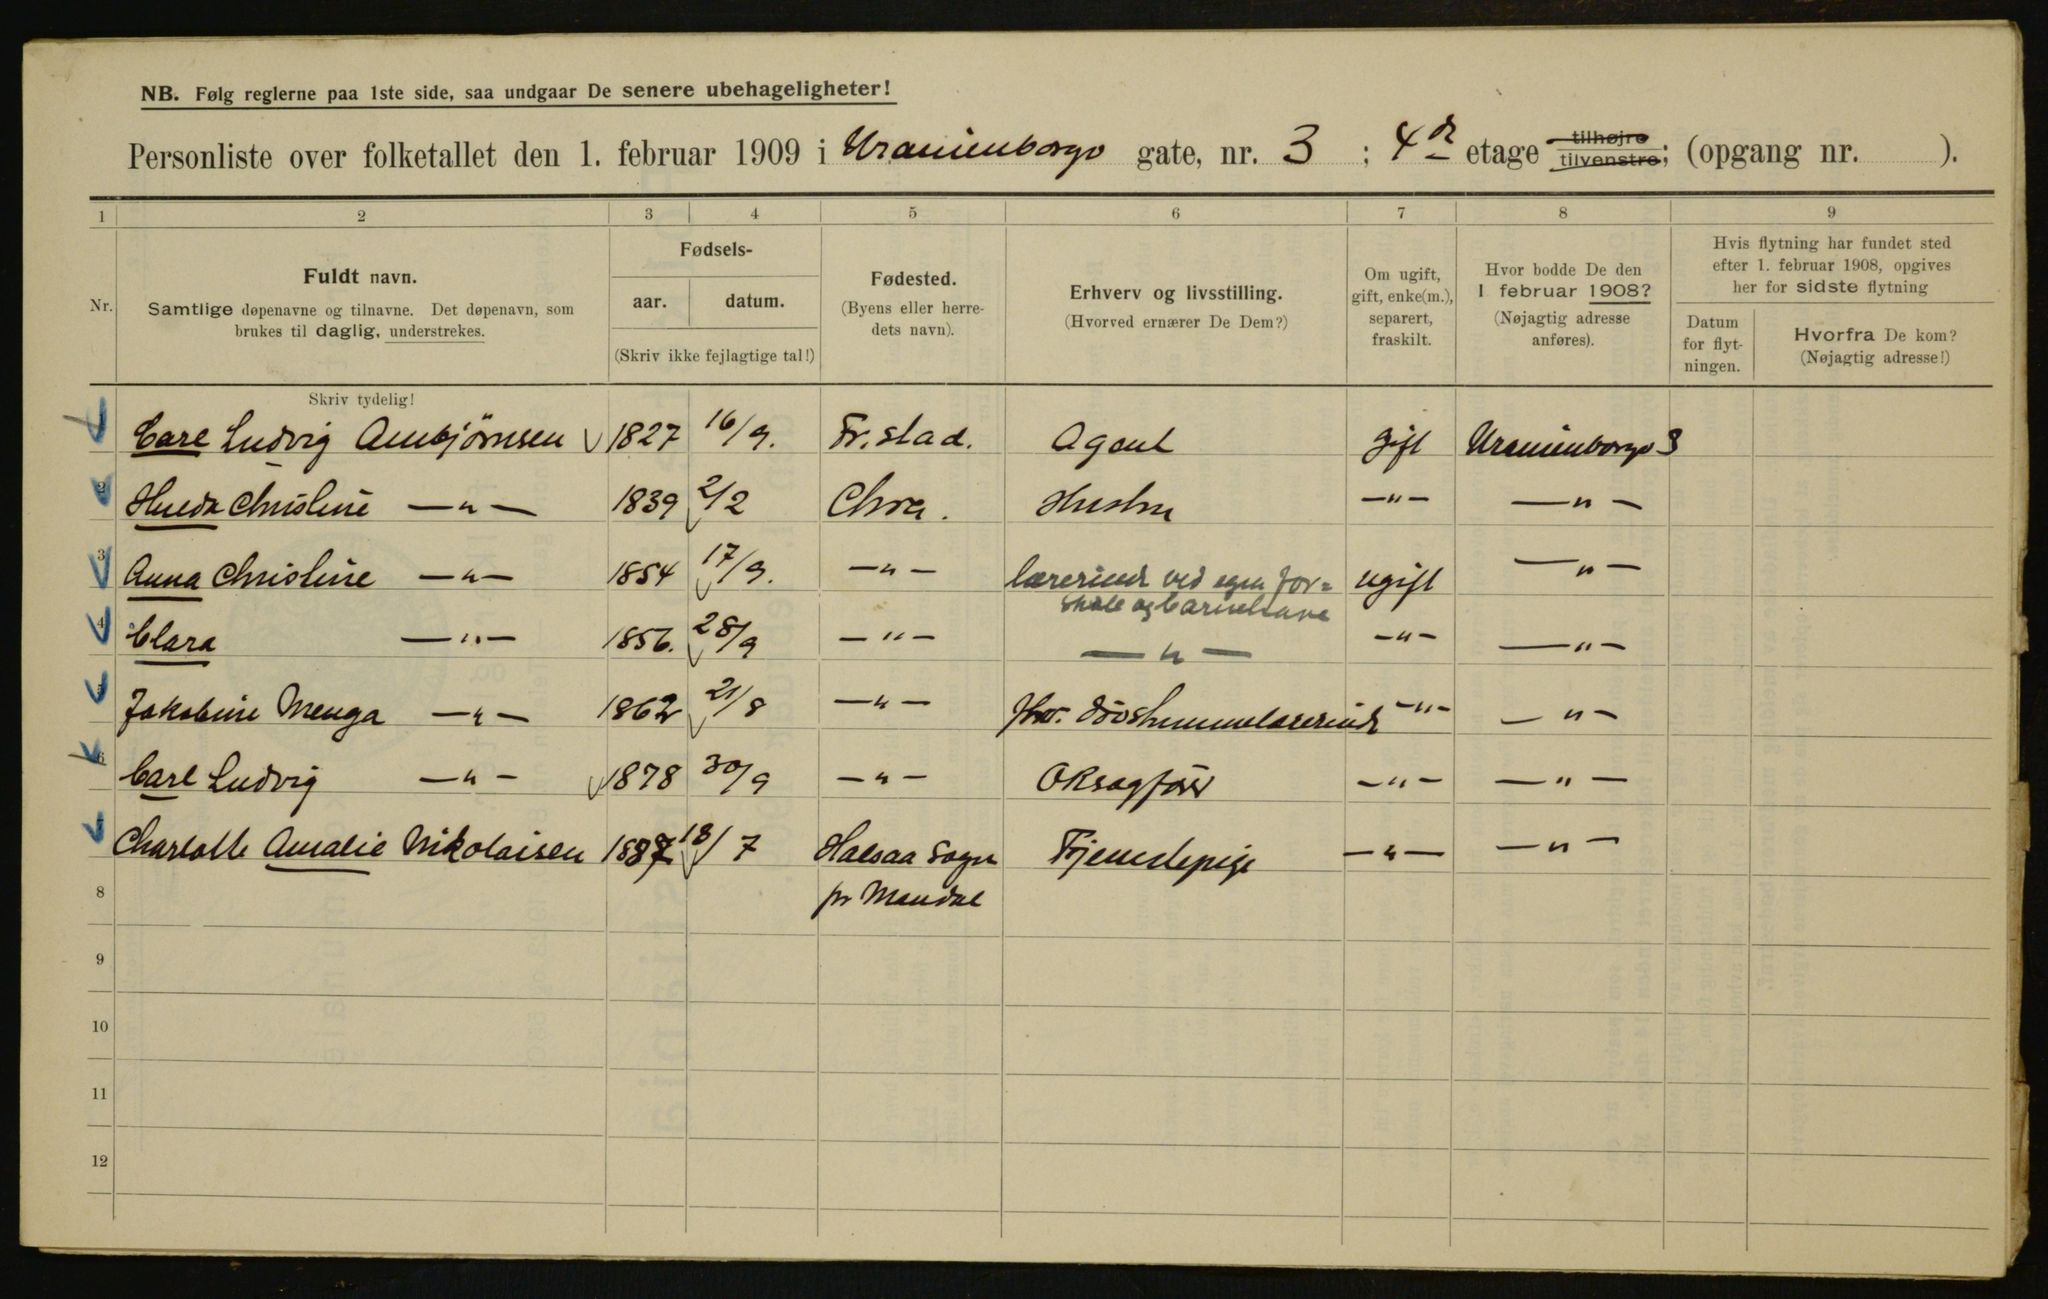 NB. Følg reglerne paa 1ste side, saa undgaar De senere ubehageligheter!
Personliste over folketallet den 1. februar 1909 i Uranienborgv gate, nr. 3 ; 4de etage tilhøjre tilvenstre; (opgang nr. ).
1 2 3 4 5 6 7 8 9
Nr.
Fuldt navn.
Samtlige døpenavne og tilnavne. Det døpenavn, som
brukes til daglig, understrekes.
Fødsels-
aar. datum.
(Skriv ikke fejlagtige tal!)
Fødested.
(Byens eller herre-
dets navn).
Erhverv og livsstilling.
(Hvorved ernærer De Dem?)
Om ugift,
gift, enke(m.),
separert,
fraskilt.
Hvor bodde De den
1 februar 1908?
(Nøjagtig adresse
anføres).
Hvis flytning har fundet sted
efter 1. februar 1908, opgives
her for sidste flytning
Datum
for flyt-
ningen.
Hvorfra De kom?
(Nøjagtig adresse!)
Skriv tydelig!
1 Carl Ludvig Ambjörnsen 1827 16/9. Fr.stad. Agent gift Uranienborgv 3
2 Hulda Christine —"— 1839 2/2 Chra. Hustru —"— —"—
3 Anna Christine —"— 1854 17/9. —"— lærerinde ved egen for= ugift —"—
skole og barnehave
4 Clara —"— 1856. 28/9 —"— —"— —"— —"—
5 Jakobine Menga —"— 1862 21/8 —"— fhv. døvstummelærerinde —"— —"—
6 Carl Ludvig —"— 1878 30/9 —"— O.Rsagfører —"— —"—
7 Charlotte Amalie Nikolaisen 1887 18/7 Halsaa Sogn Tjenestepige —"— —"—
8 pr Mandal
9
10
11
12